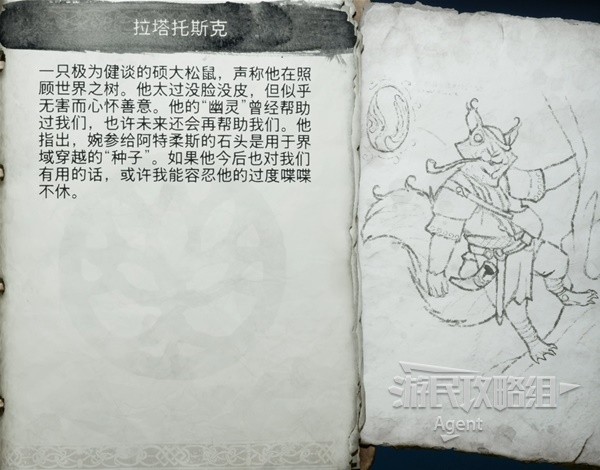 拉塔托斯克
一只极为健谈的硕大松鼠，声称他在照
顾世界之树。他太过没脸没皮，但似乎
无害而心怀善意。他的“幽灵”曾经帮助
过我们，也许未来还会再帮助我们。他
指出，婉参给阿特柔斯的石头是用于界
域穿越的“种子”。如果他今后也对我们
有用的话，或许我能容忍他的过度喋喋
不休。
游民攻略组
Agent